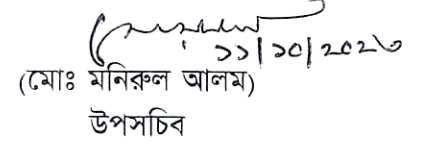 ১১/১০/২০২৩
(মোঃ মনিরুল আলম)
উপসচিব